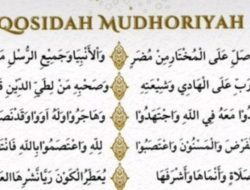 QOSIDAH MUDHORIYAH
صَلِّ عَلَى الْمُخْتَارِ مِنْ مُضَرٍ وَالْأَنْبِيَا وَجَمِيْعِ الرُّسْلِ
رَبِّ عَلَى الْهَادِي وَشِيْعَتِهِ وَصَحْبِهِ مَنْ لِطَيِّ الدِّيْنِ
مَعَهُ فِي اللهِ وَاجْتَهَدُوْا وَهَاجَرُوْا وَلَهُ آوَوْا وَقَدْ
وَالْمَسْنُوْنَ وَاعْتَصَبُوْا لِلّٰهِ وَاعْتَصَمُوْا بِاللهِ
وَأَنْمَاهَا وَأَشْرَفَهَا يُعَطِّرُ الْكَوْنَ رَيَّا نَشْرِهَا